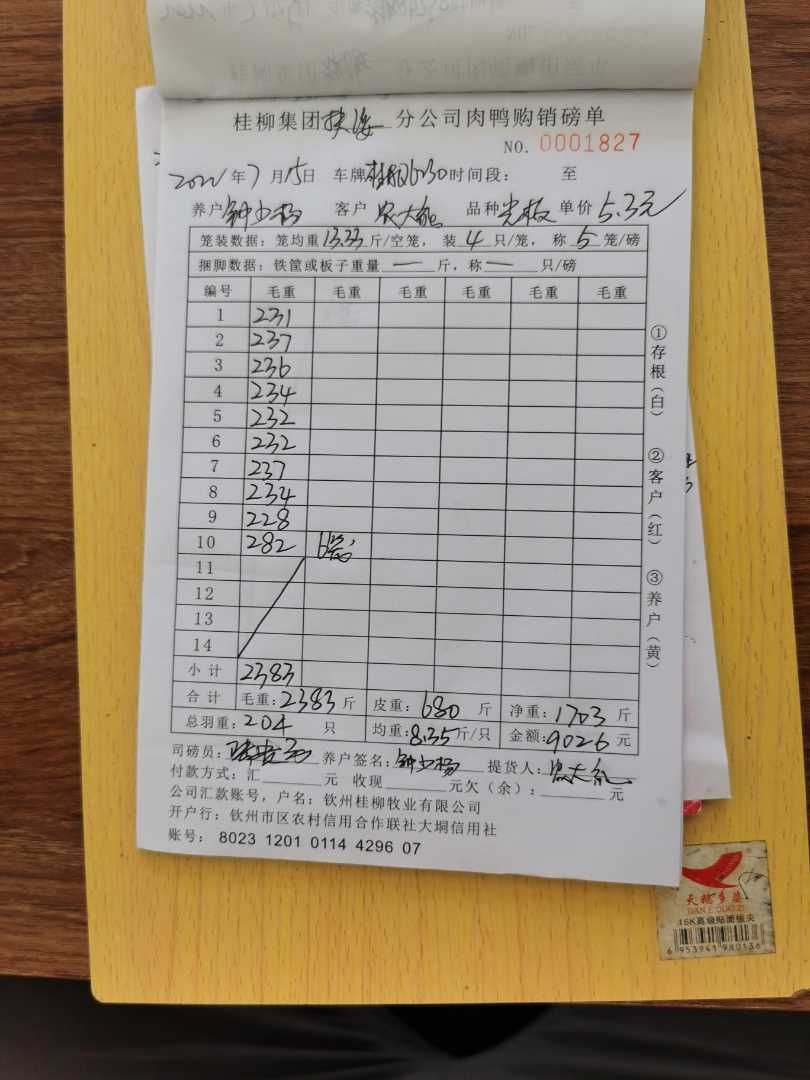 桂柳集团扶海分公司肉鸭购销磅单
NO. 0001827
2022年7月15日 车牌 6230 时间段: 至
养户 钟少杨 客户 农大 品种 光板 单价 5.3元
笼装数据:笼均重13.33斤/空笼,装4只/笼,称5笼/磅
捆脚数据:铁筐或板子重量一斤,称一只/磅
编号 毛重 毛重 毛重 毛重 毛重 毛重
1 231
2 237
3 236
4 234
5 232
6 232
7 237
8 234
9 228
10 282 6笼
11
12
13
14
小计 2383
合计 毛重:2383斤 皮重:680斤 净重:1703斤
总羽重:204只 均重:8.35斤/只 金额:9026元
司磅员: 养户签名:钟少杨 提货人:农大
付款方式:汇 元 收现 元欠(余): 元
公司汇款账号,户名:钦州桂柳牧业有限公司
开户行:钦州市区农村信用合作联社大垌信用社
账号: 8023 1201 0114 4296 07
①存根(白)
②客户(红)
③养户(黄)
天鹅多姿
DAN E DUO ZI
16K高级贴面板夹
6 953941 980136